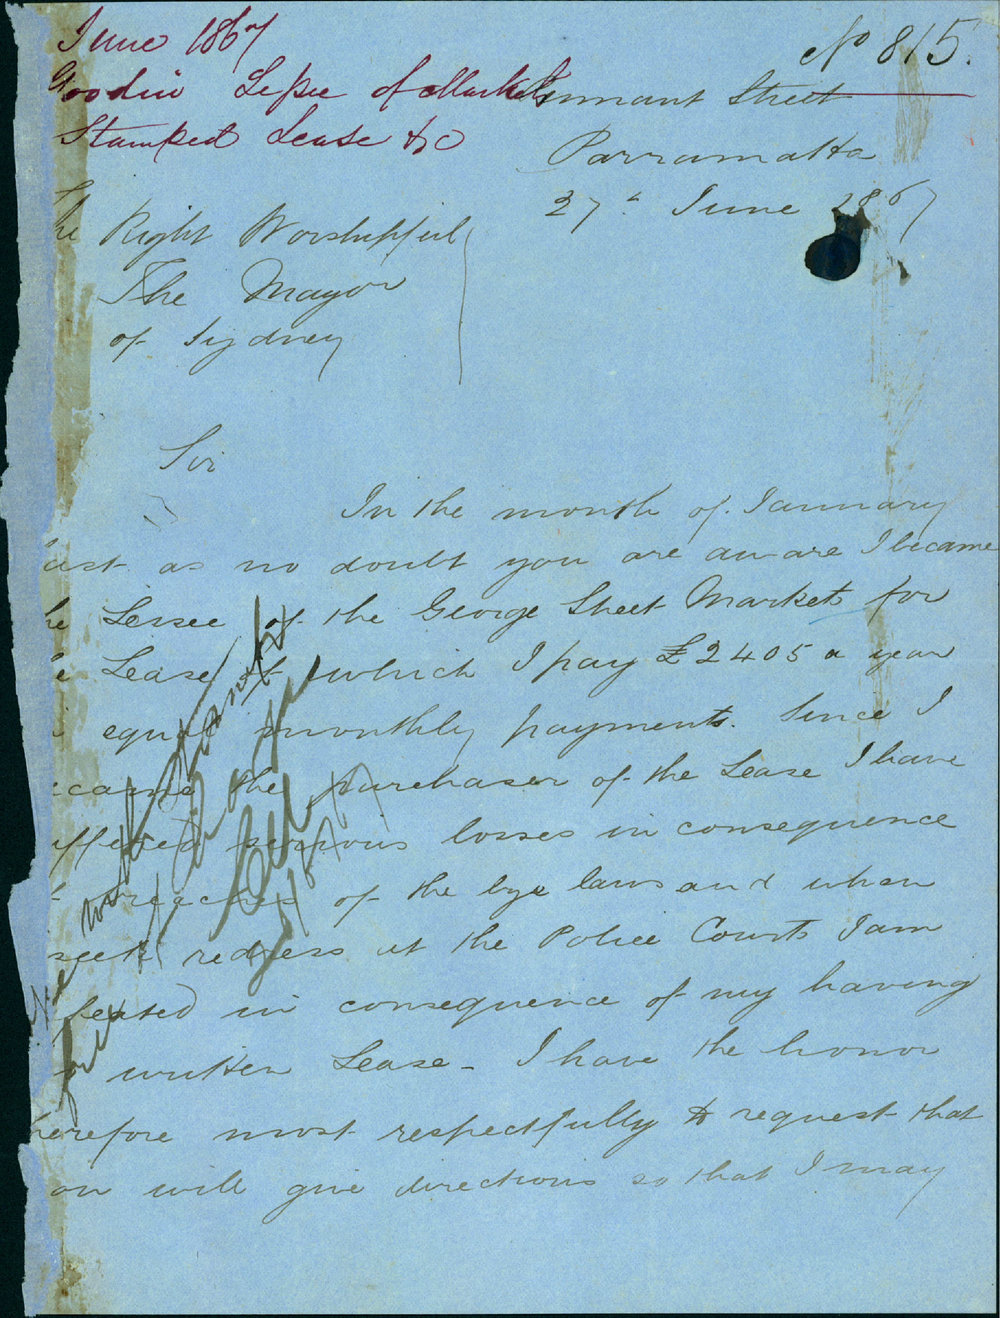 June 1867
No 815.
Goodin Lessee of Markets
Stamped Lease &c
Street
Parramatta
27th June 1867
The Right Worshipful
The Mayor
of Sydney
Sir
In the month of January
last as no doubt you are aware I became
he Lessee of the George Street Markets for
e Lease of which I pay £2405 a year
equal monthly payments. Since I
ecame the purchaser of the Lease I have
uffered serious losses in consequence
breaches of the bye laws and when
seek redress at the Police Courts I am
feated in consequence of my having
o written Lease - I have the honor
herefore most respectfully to request that
ou will give directions so that I may